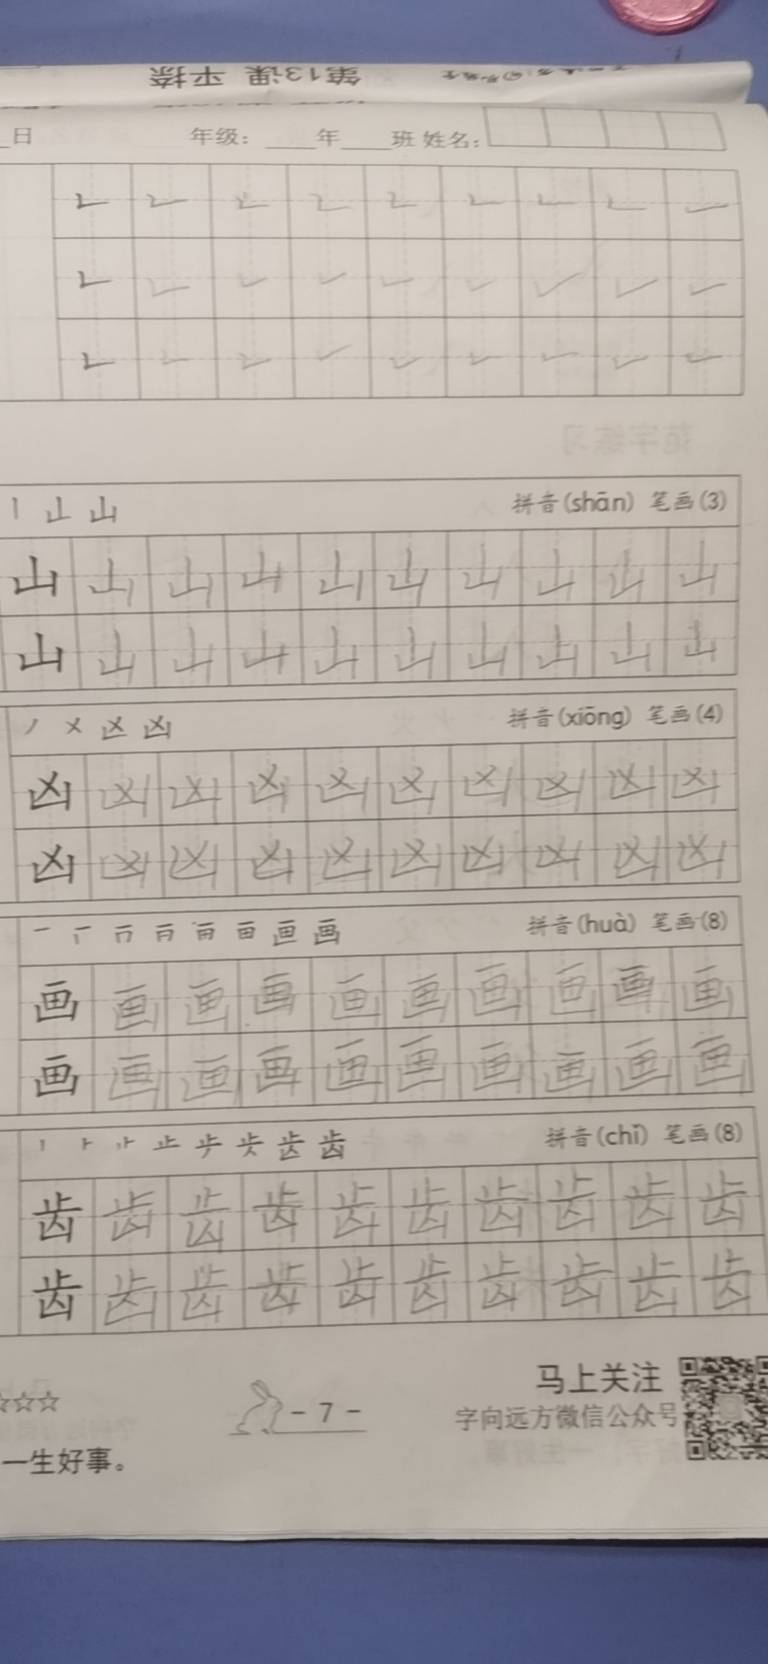 第13课 平捺
日 年级：____年____班 姓名：
㇗ ㇗ ㇗ ㇗ ㇗ ㇗ ㇗ ㇗ ㇗
㇗ ㇗ ㇗ ㇗ ㇗ ㇗ ㇗ ㇗ ㇗
㇗ ㇗ ㇗ ㇗ ㇗ ㇗ ㇗ ㇗ ㇗
山 拼音(shān) 笔画(3)
山 山 山 山 山 山 山 山 山 山
山 山 山 山 山 山 山 山 山 山
凶 拼音(xiōng) 笔画(4)
凶 凶 凶 凶 凶 凶 凶 凶 凶 凶
凶 凶 凶 凶 凶 凶 凶 凶 凶 凶
画 拼音(huà) 笔画(8)
画 画 画 画 画 画 画 画 画 画
画 画 画 画 画 画 画 画 画 画
齿 拼音(chǐ) 笔画(8)
齿 齿 齿 齿 齿 齿 齿 齿 齿 齿
齿 齿 齿 齿 齿 齿 齿 齿 齿 齿
☆☆☆ -7- 马上关注
字向远方微信公众号
一生好事。